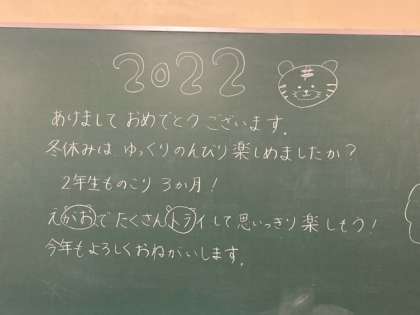 2022
あけまして おめでとう ございます。
冬休みは ゆっくりのんびり 楽しめましたか?
2年生ものこり 3か月!
えがおで たくさん トライして 思いっきり 楽しもう!
今年もよろしくおねがいします。